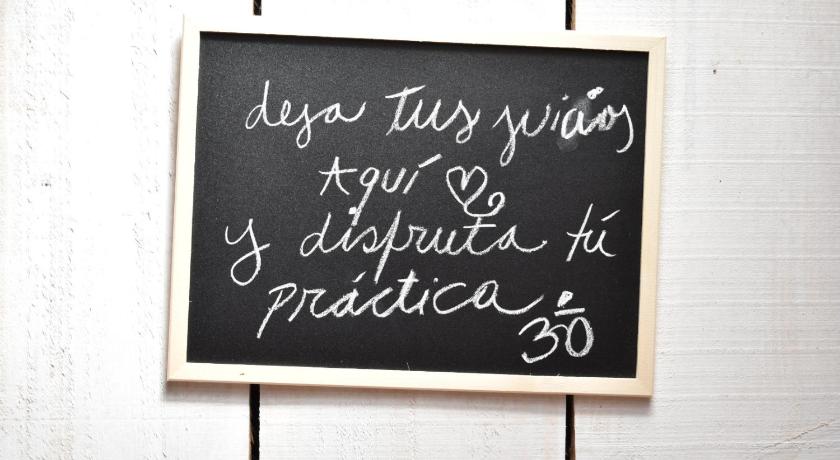 deja tus juicios
Aquí
y disfruta tú
práctica
ૐ